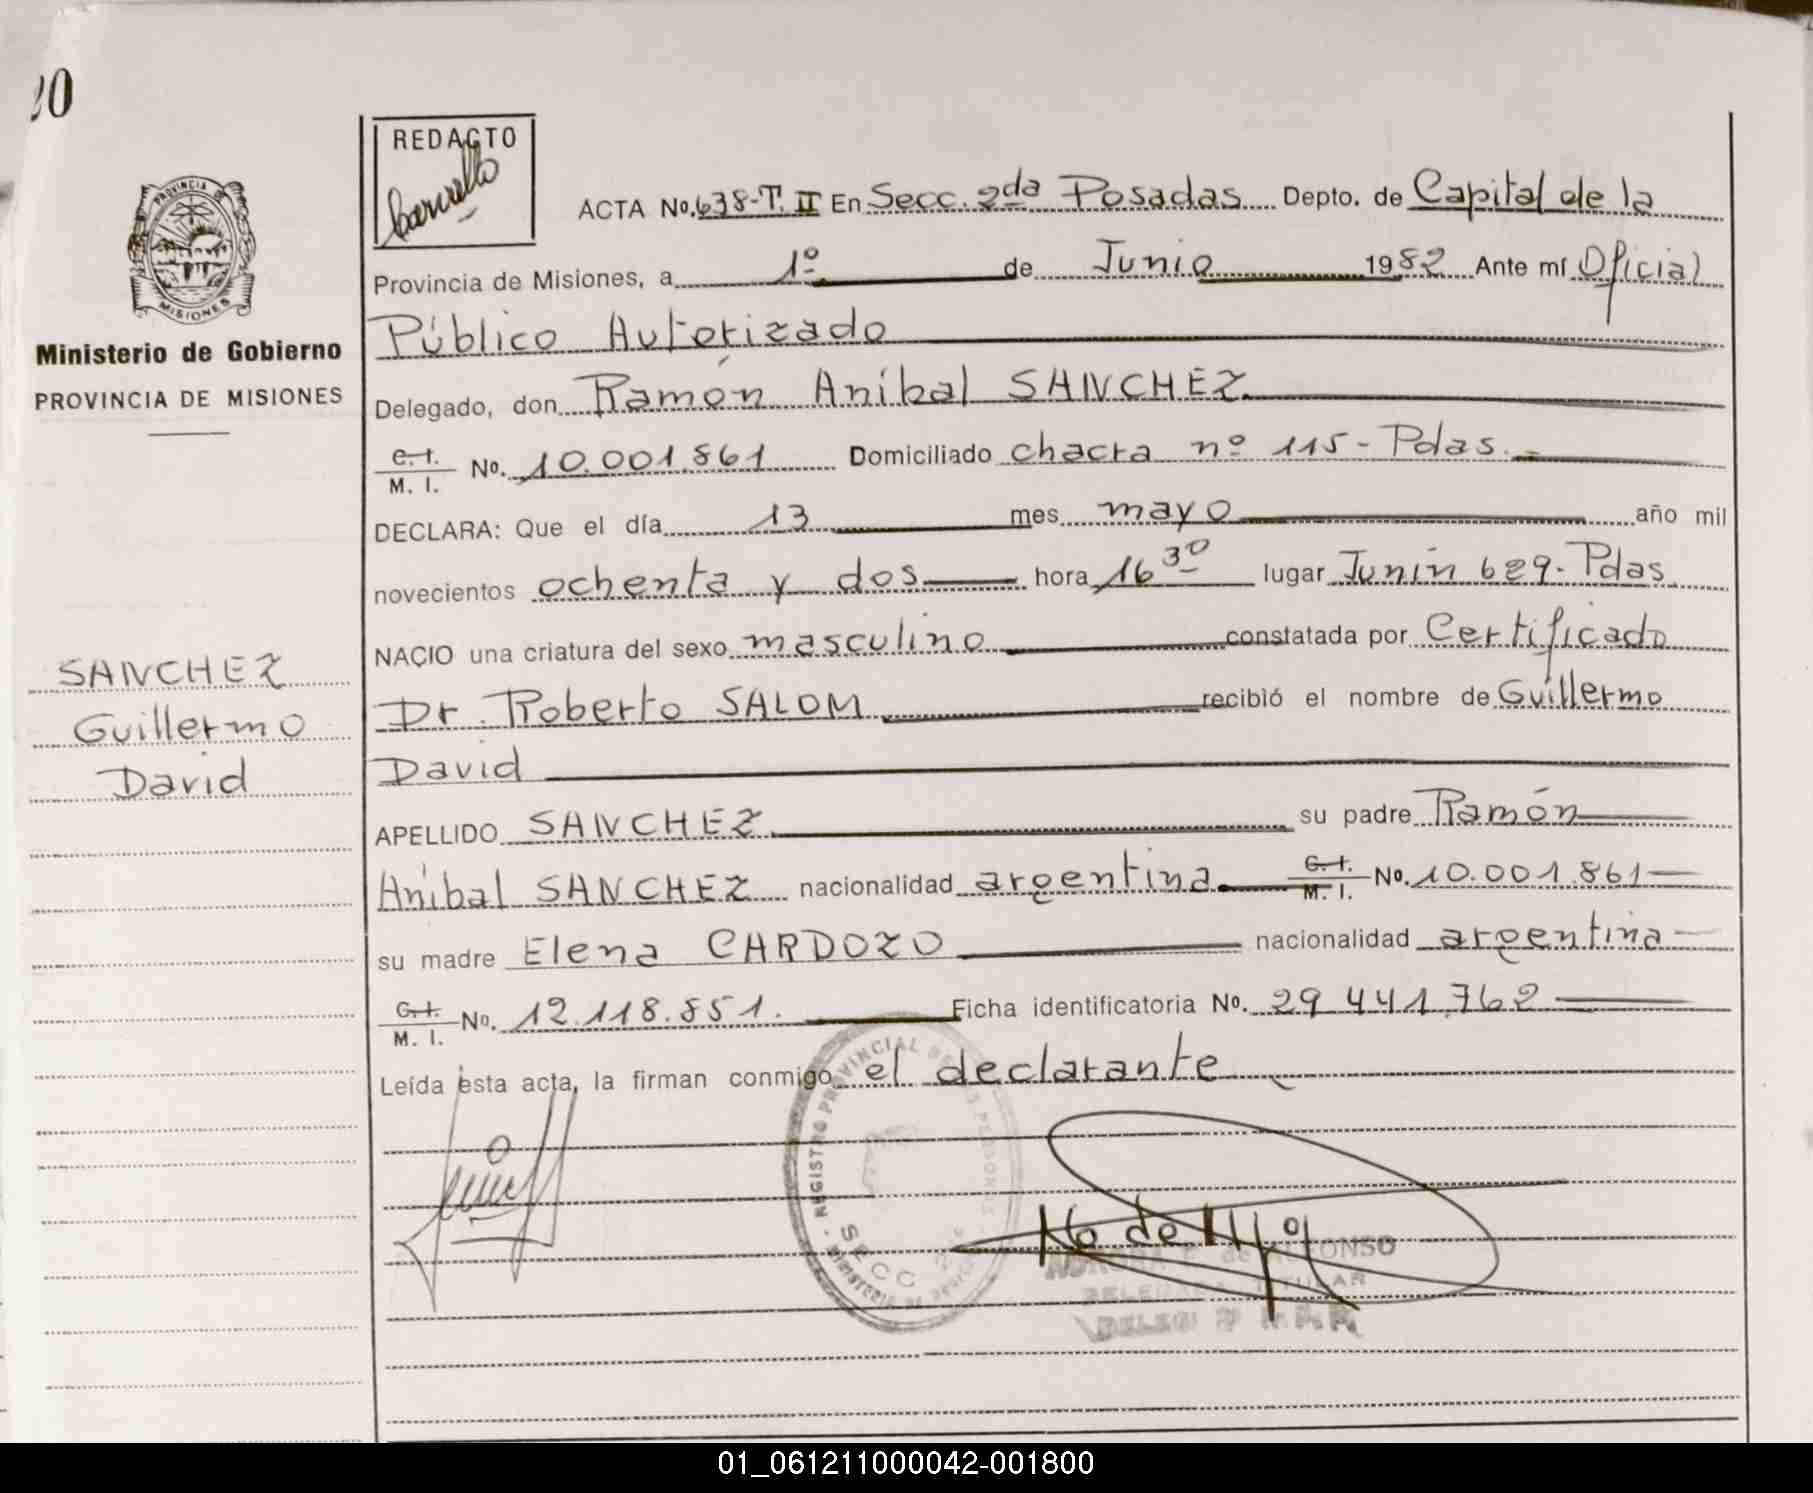 20
REDACTO
PROVINCIA DE
MISIONES
Ministerio de Gobierno
PROVINCIA DE MISIONES
SANCHEZ
Guillermo
David
ACTA No. 638-T. II En Secc. 2da Posadas Depto. de Capital de la
Provincia de Misiones, a 1º de Junio 1982 Ante mí Oficial
Público Autorizado
Delegado, don Ramón Aníbal SANCHEZ
C.I. M. I. No. 10.001.861 Domiciliado chacra nº 115 - Pdas.
DECLARA: Que el día 13 mes mayo año mil
novecientos ochenta y dos hora 16 30 lugar Junín 629 - Pdas
NACIO una criatura del sexo masculino constatada por Certificado
Dr. Roberto SALOM recibió el nombre de Guillermo
David
APELLIDO SANCHEZ su padre Ramón
Aníbal SANCHEZ nacionalidad argentina C.I. M. I. No. 10.001.861
su madre Elena CARDOZO nacionalidad argentina
C.I. M. I. No. 12.118.851. Ficha identificatoria No. 29 441.762
Leída esta acta, la firman conmigo el declarante
REGISTRO PROVINCIAL DE LAS PERSONAS
SECC.
DELEGADA TITULAR
01_061211000042-001800